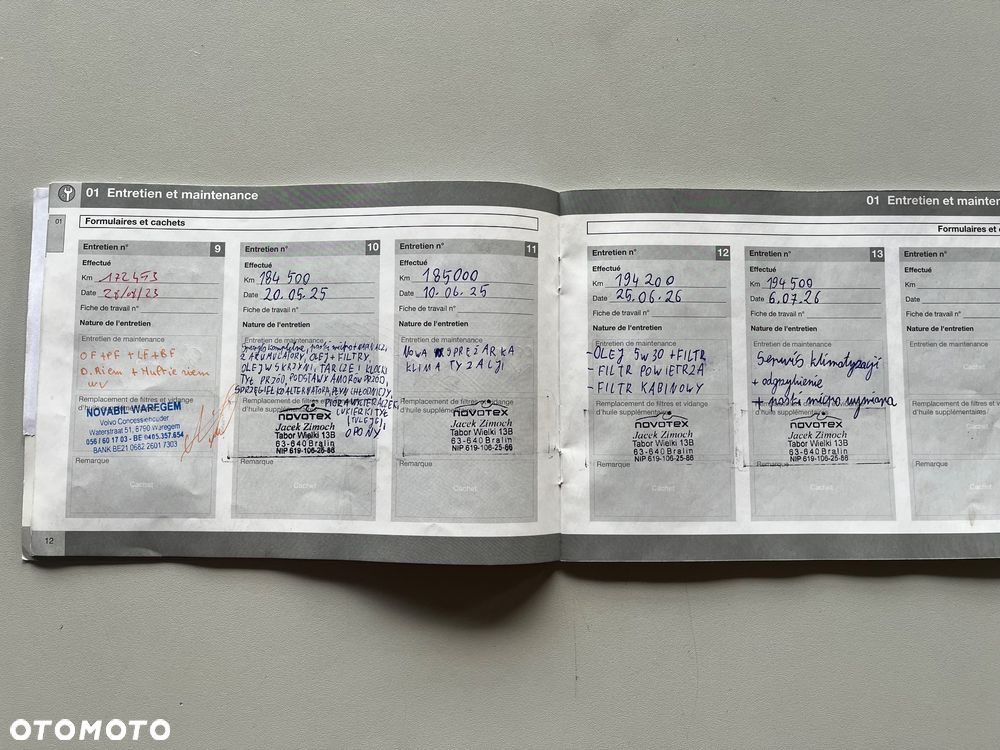 01 Entretien et maintenance
01
Formulaires et cachets
Entretien n° 9
Effectué
Km 172453
Date 28/08/23
Fiche de travail n°
Nature de l'entretien
Entretien de maintenance
OF+PF + LF + BF
D. Riem + Multie riem
WV
Remplacement de filtres et vidange
d'huile supplémentaires
NOVABIL WAREGEM
Volvo Concessiehouder
Waterstraat 51, 8790 Waregem
056 / 60 17 03 - BE 0405.357.654
BANK BE21 0682 2601 7303
Remarque
Cachet
Entretien n° 10
Effectué
Km 184 500
Date 20.05.25
Fiche de travail n°
Nature de l'entretien
Entretien de maintenance
2 AKUMULATORY, OLEJ + FILTRY,
OLEJ W SKRZYNI, TARCZE I KLOCKI
TYŁ PRZÓD, PODSTAWY AMORÓW PRZÓD,
SPRZĘGIEŁKO ALTERNATORA, PŁYN CHŁODNICZY,
Remplacement de filtres et
d'huile supplémentaires
PIÓRA WYCIERACZEK,
CUKIERKI TYŁ
(TULEJE)
OPONY
novotex
Jacek Zimoch
Tabor Wielki 13B
63-640 Bralin
NIP 619-106-25-86
Remarque
Cachet
Entretien n° 11
Effectué
Km 185000
Date 10.06.25
Fiche de travail n°
Nature de l'entretien
Entretien de maintenance
NOWA SPRĘŻARKA
KLIMATYZACJI
Remplacement de filtres et vidange
d'huile supplémentaires
novotex
Jacek Zimoch
Tabor Wielki 13B
63-640 Bralin
NIP 619-106-25-86
Remarque
Cachet
12
01 Entretien et mainten
Formulaires et c
Entretien n° 12
Effectué
Km 194 200
Date 25.06.26
Fiche de travail n°
Nature de l'entretien
Entretien de maintenance
- OLEJ 5W30 + FILTR
- FILTR POWIETRZA
- FILTR KABINOWY
Remplacement de filtres et vidange
d'huile supplémentaires
novotex
Jacek Zimoch
Tabor Wielki 13B
63-640 Bralin
NIP 619-106-25-86
Remarque
Cachet
Entretien n° 13
Effectué
Km 194500
Date 6.07.26
Fiche de travail n°
Nature de l'entretien
Entretien de maintenance
Serwis klimatyzacji
+ odgrzybienie
+ paski micro wymiana
Remplacement de filtres et vidange
d'huile supplémentaires
novotex
Jacek Zimoch
Tabor Wielki 13B
63-640 Bralin
NIP 619-106-25-86
Remarque
Cachet
Entretien n°
Effectué
Km
Date
Fiche de travail n°
Nature de l'entretien
Entretien de maintenance
Remplacement de filtres
d'huile supplémentaires
Remarque
Cachet
OTOMOTO